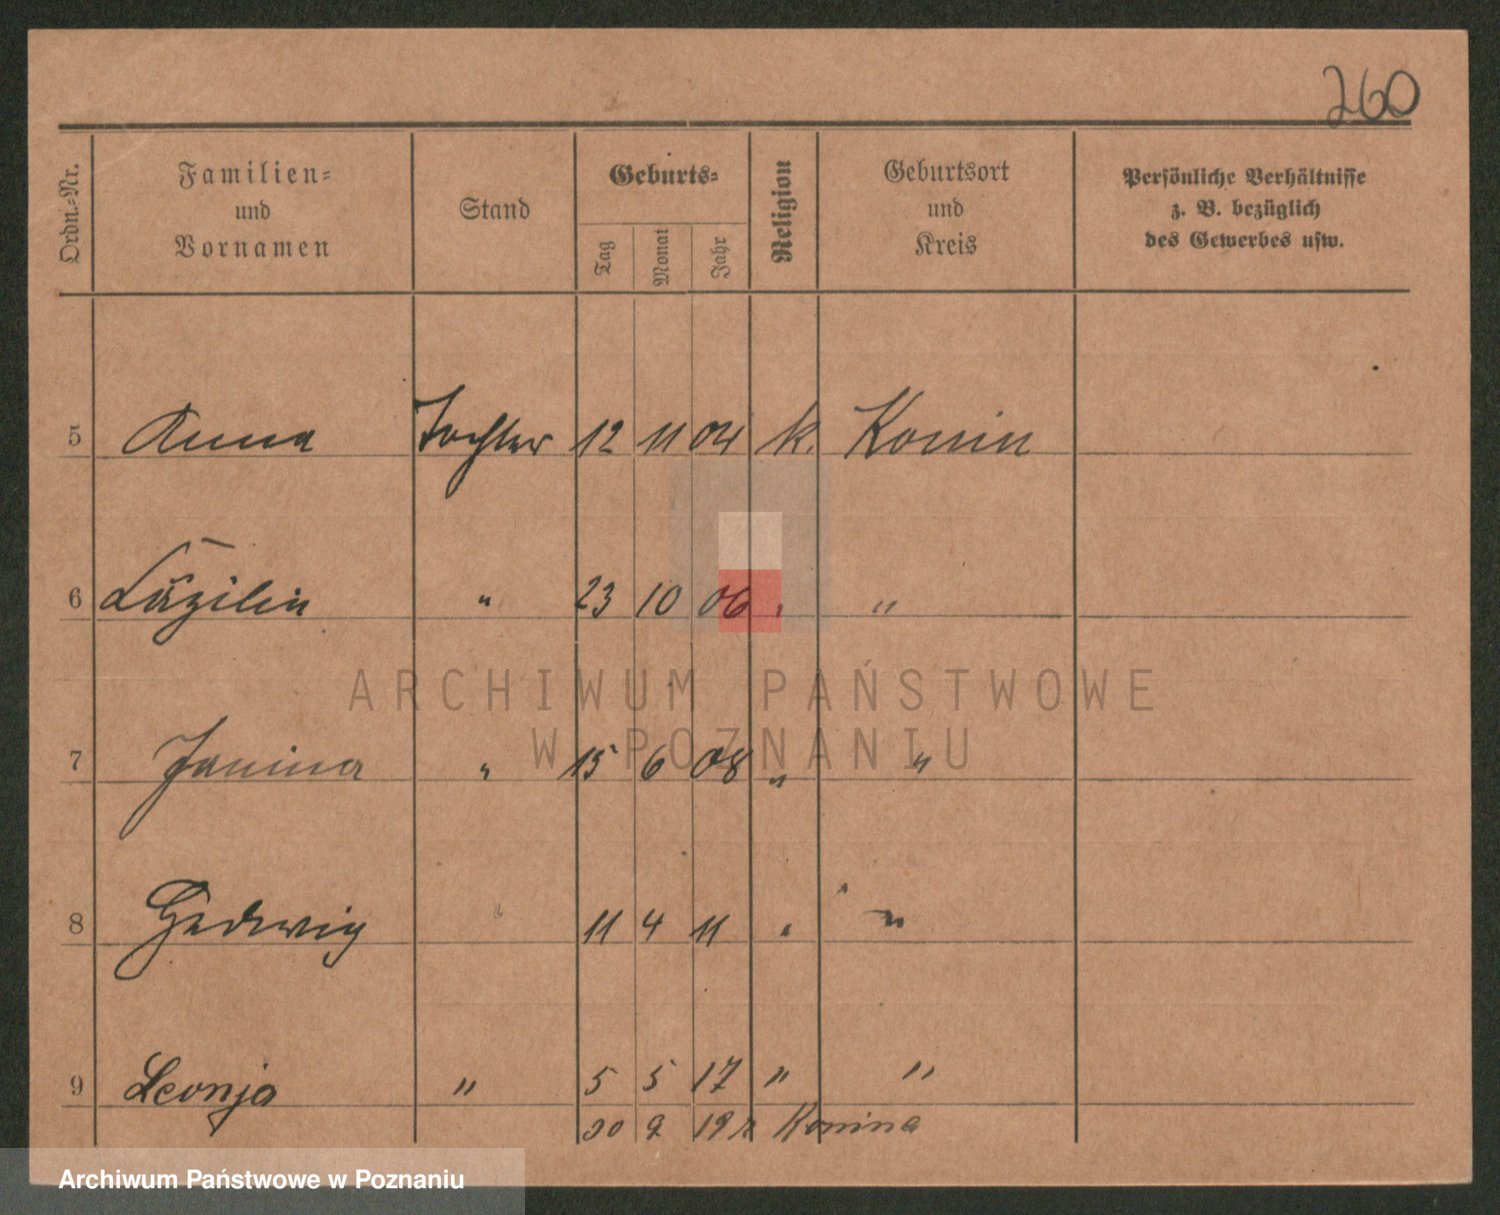 260
Ordn.-Nr.
Familien-
und
Vornamen
Stand
Geburts-
Tag
Monat
Jahr
Religion
Geburtsort
und
Kreis
Persönliche Verhältnisse
z. B. bezüglich
des Gewerbes usw.
5 Anna Tochter 12 11 04 k. Konin
6 Cäzilie " 23 10 06 " "
7 Janina " 15 6 08 " "
8 Hedwig " 11 4 11 " "
9 Leonja " 5 5 17 " "
30 9 19 Konina
ARCHIWUM PAŃSTWOWE
W POZNANIU
Archiwum Państwowe w Poznaniu